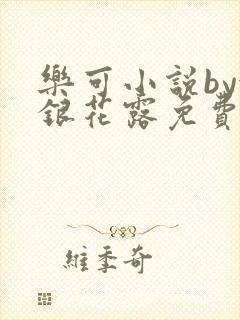 樂可小說by
銀花露免費
維季奇